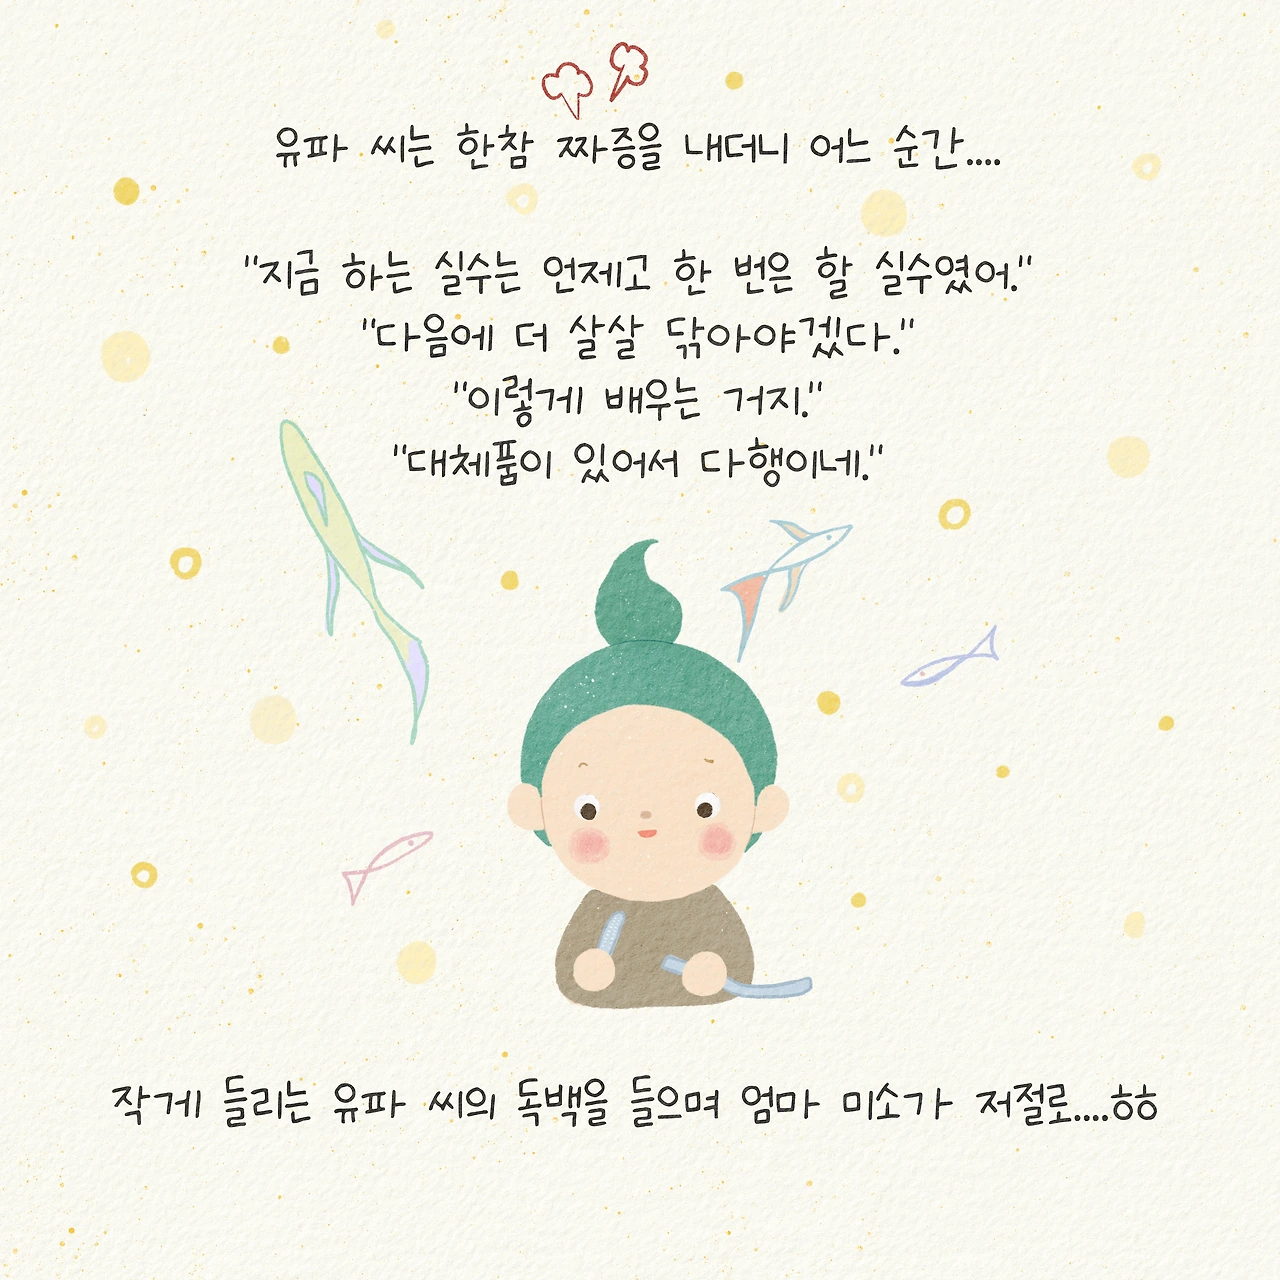 유파 씨는 한참 짜증을 내더니 어느 순간....
"지금 하는 실수는 언제고 한 번은 할 실수였어."
"다음에 더 살살 닦아야겠다."
"이렇게 배우는 거지."
"대체품이 있어서 다행이네."
작게 들리는 유파 씨의 독백을 들으며 엄마 미소가 저절로....ㅎㅎ